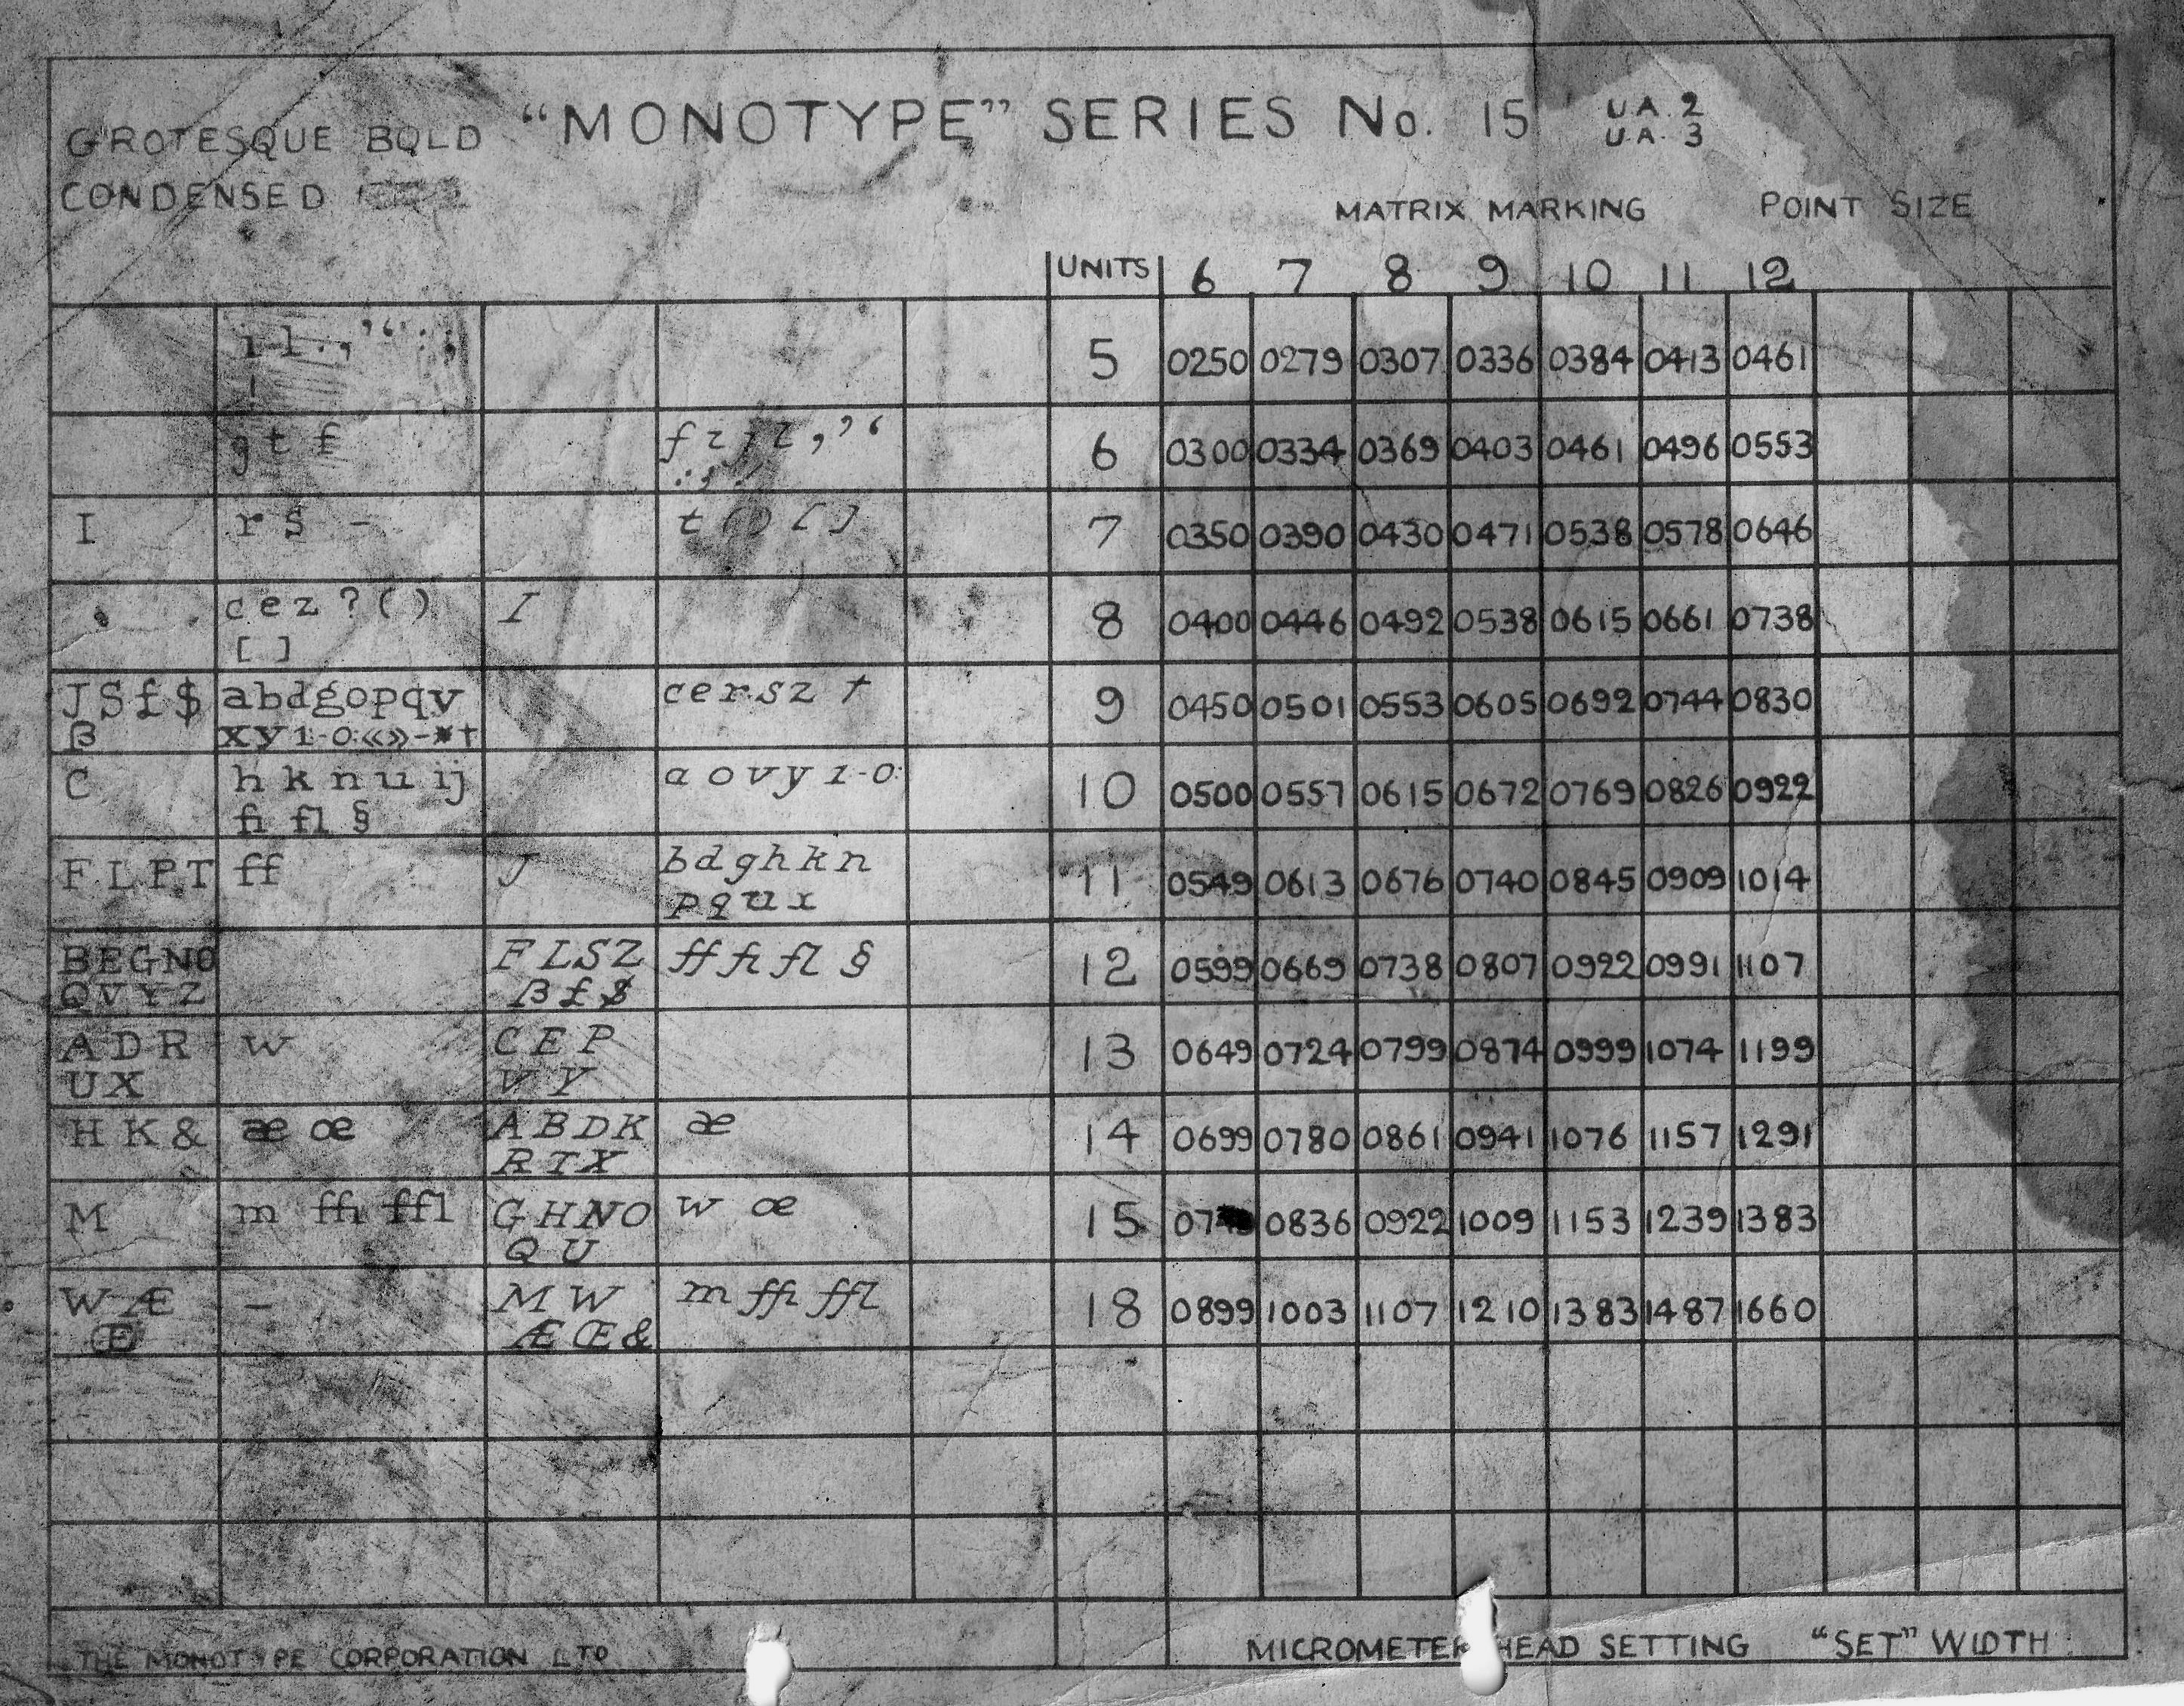 GROTESQUE BOLD "MONOTYPE" SERIES No. 15 U.A. 2
U.A. 3
CONDENSED
MATRIX MARKING POINT SIZE
UNITS 6 7 8 9 10 11 12
i l . , ’ ‘ : ; 5 0250 0279 0307 0336 0384 0413 0461
!
t f f i j l , ’ ‘ 6 0300 0334 0369 0403 0461 0496 0553
: ; !
I r s - t ( ) [ ] 7 0350 0390 0430 0471 0538 0578 0646
c e z ? ( ) I 8 0400 0446 0492 0538 0615 0661 0738
[ ]
J S £ $ a b d g o p q v c e r s z † 9 0450 0501 0553 0605 0692 0744 0830
ß x y 1-0: « » - * †
C h k n u ij a o v y 1-0: 10 0500 0557 0615 0672 0769 0826 0922
fi fl §
F L P T ff J b d g h k n 11 0549 0613 0676 0740 0845 0909 1014
p q u x
B E G N O F L S Z ff fi fl § 12 0599 0669 0738 0807 0922 0991 1107
Q V Y Z ß £ $
A D R w C E P 13 0649 0724 0799 0874 0999 1074 1199
U X V Y
H K & æ œ A B D K æ 14 0699 0780 0861 0941 1076 1157 1291
R T X
M m ffi ffl G H N O w œ 15 0836 0922 1009 1153 1239 1383
Q U
W Æ – M W m ffi ffl 18 0899 1003 1107 1210 1383 1487 1660
Œ Æ Œ &
THE MONOTYPE CORPORATION LTD MICROMETER HEAD SETTING "SET" WIDTH